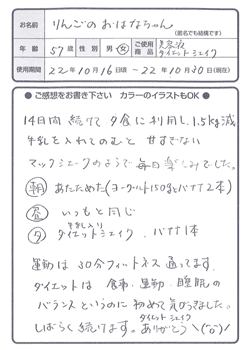 お名前 りんごのおはなちゃん
(匿名でも結構です)
年齢 57才 性別 男・女 ご使用商品 美容液 ダイエットシェイク
使用期間 22年10月16日頃 ～ 22年10月30日(現在)
● ご感想をお書き下さい カラーのイラストもOK ●
14日間 続けて 夕食に利用し、1.5kg減
牛乳を入れてのむと 甘すぎない
マックシェークのようで 毎日楽しみでした。
朝 あたためた(ヨーグルト150gとバナナ2本)
昼 いつもと同じ
夕 牛乳入り ダイエットシェイク、バナナ1本
運動は 30分フィットネス 通ってます。
ダイエットは 食事、運動、睡眠の
バランスというのに 初めて気がつきました。
ダイエットシェイク
しばらく続けます。ありがとう \(^o^)/